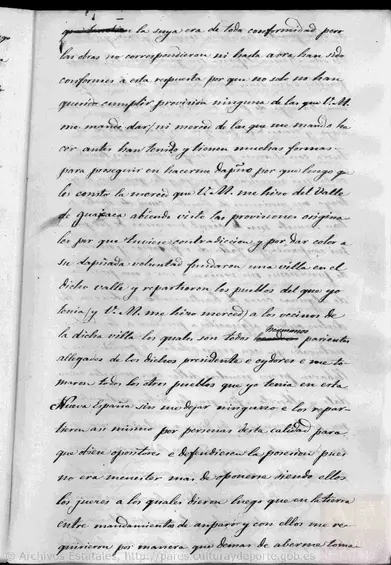 la suya era de toda conformidad pero
las otras no correspondieron ni hasta aora han sido
conformes a esta respuesta por que no solo no han
querido cumplir provision ninguna de las que V. M.
me mandó dar/ ni merced de las que me mandó ha
cer antes han tenido y tienen muchas formas
para proseguir en hacerme daño por que luego q.
les consto la merced que V. M. me hizo del Valle
de Guaxaca abiendo visto las provisiones origina
les por que tuviese contradiccion y por dar color a
su dañada voluntad fundaron una villa en el
dicho valle y repartieron los pueblos del que yo
tenia (y V. M. me hizo merced) a los vecinos de
la dicha villa los quales son todos parientes
allegados de los dichos presidente e oydores e me to
maron todos los otros pueblos que yo tenia en esta
Nueva España sin me dejar ninguno e los repar
tieron asi mismo por personas desta calidad para
que obien opositores e defendiesen la posesion pues
no era menester mas de oponerse siendo ellos
los jueces a los quales dieron luego que en la tierra
entre mandamientos de amparo y con ellos me re
quirieron por manera que demas de aberme toma
© Archivos Estatales, http://pares.culturaydeporte.gob.es